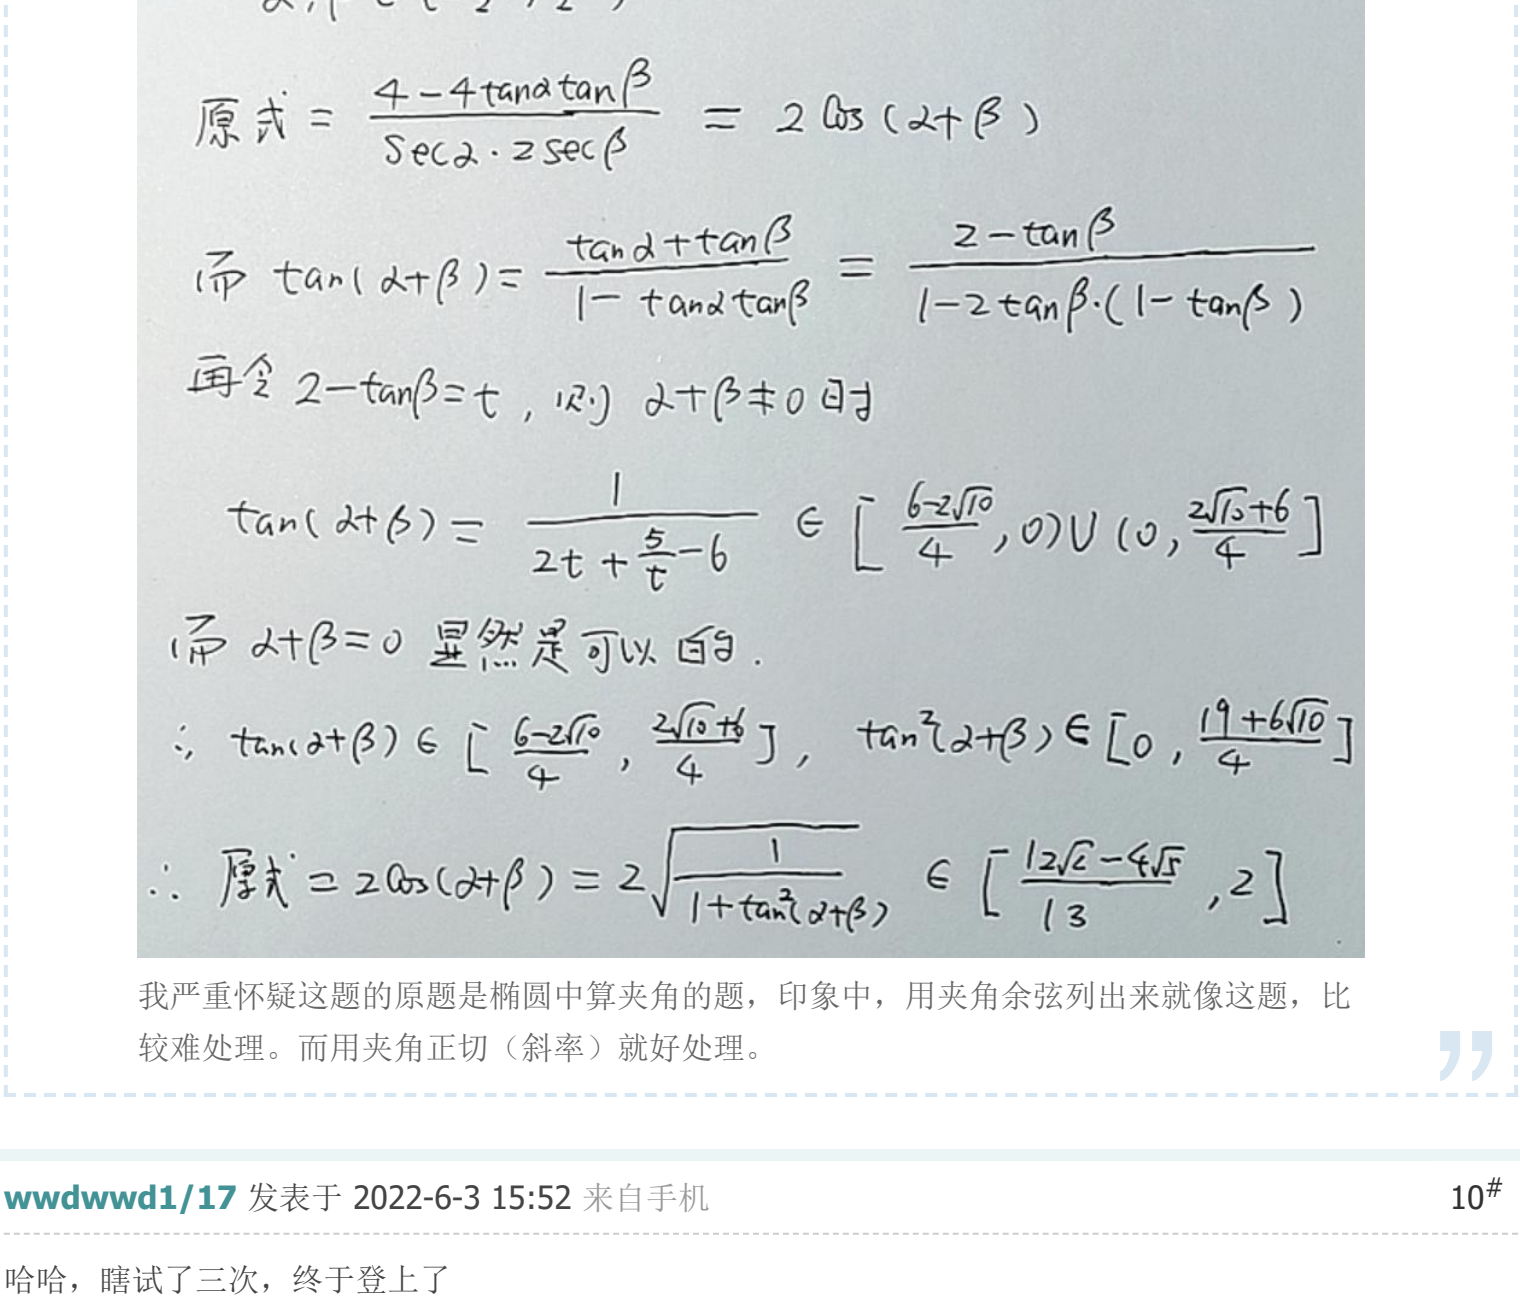 原式 = (4-4tanαtanβ)/(secα·2secβ) = 2cos(α+β)
而 tan(α+β)= (tanα+tanβ)/(1-tanαtanβ) = (2-tanβ)/(1-2tanβ·(1-tanβ))
再令 2-tanβ=t，则 α+β≠0时
tan(α+β)= 1/(2t+5/t-6) ∈ [(6-2√10)/4, 0)∪(0, (2√10+6)/4]
而 α+β=0 显然是可以的.
∴ tan(α+β)∈[(6-2√10)/4, (2√10+6)/4], tan²(α+β)∈[0, (19+6√10)/4]
∴ 原式=2cos(α+β)=2√(1/(1+tan²(α+β))) ∈ [(12√2-4√5)/13, 2]
我严重怀疑这题的原题是椭圆中算夹角的题，印象中，用夹角余弦列出来就像这题，比
较难处理。而用夹角正切（斜率）就好处理。
wwdwwd1/17 发表于 2022-6-3 15:52 来自手机 10#
哈哈，瞎试了三次，终于登上了